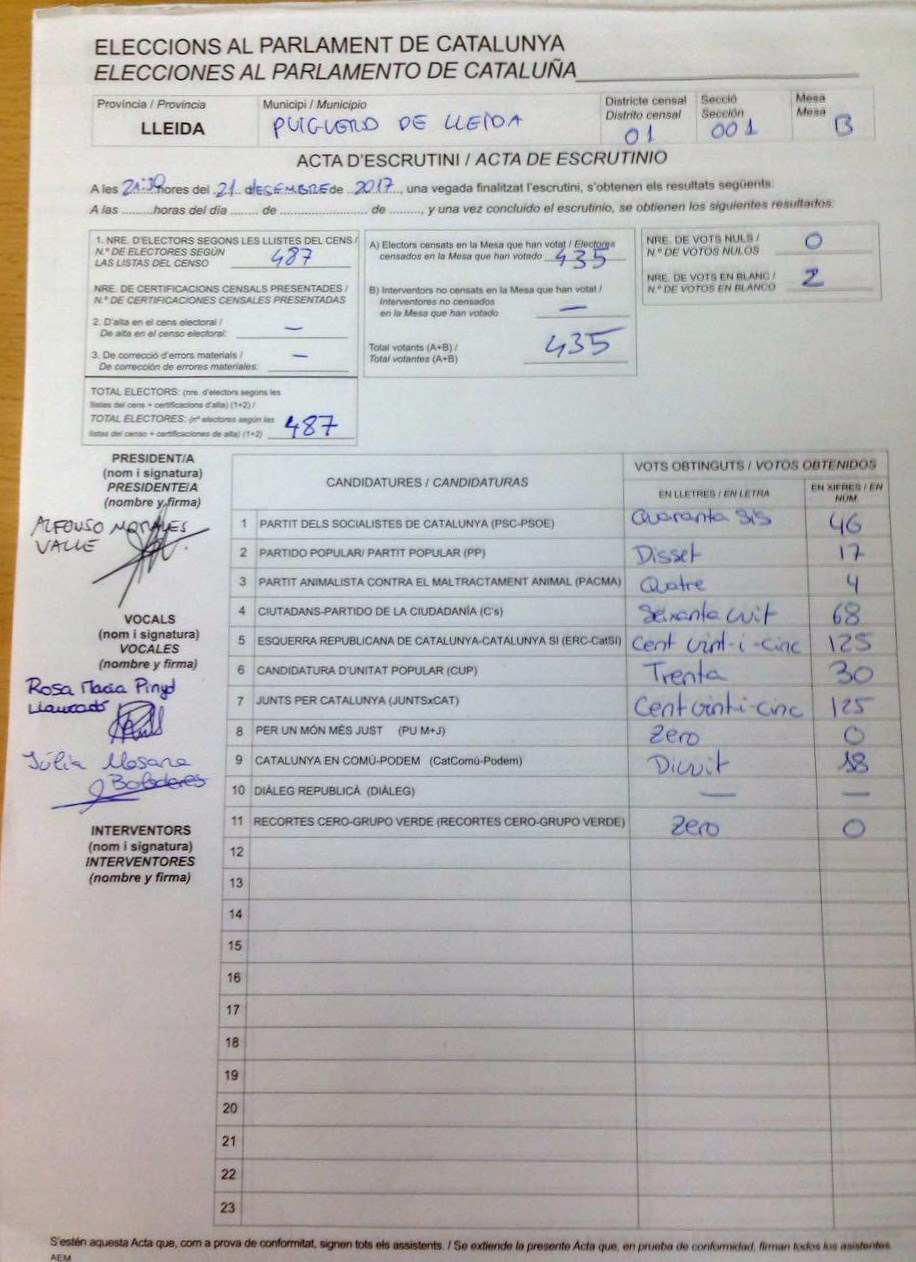 ELECCIONS AL PARLAMENT DE CATALUNYA
ELECCIONES AL PARLAMENTO DE CATALUÑA
Província / Provincia
LLEIDA
Municipi / Municipio
PUIGVERD DE LLEIDA
Districte censal
Distrito censal
01
Secció
Sección
001
Mesa
Mesa
B
ACTA D'ESCRUTINI / ACTA DE ESCRUTINIO
A les 21:30 hores del 21 d DESEMBRE de 2017, una vegada finalitzat l'escrutini, s'obtenen els resultats següents:
A las .........horas del día ........ de ........................ de ........, y una vez concluido el escrutinio, se obtienen los siguientes resultados:
1. NRE. D'ELECTORS SEGONS LES LLISTES DEL CENS /
N.º DE ELECTORES SEGÚN
LAS LISTAS DEL CENSO 487
NRE. DE CERTIFICACIONS CENSALS PRESENTADES /
N.º DE CERTIFICACIONES CENSALES PRESENTADAS
2. D'alta en el cens electoral /
De alta en el censo electoral: –
3. De correcció d'errors materials /
De corrección de errores materiales: –
TOTAL ELECTORS: (nre. d'electors segons les
llistes del cens + certificacions d'alta) (1+2) /
TOTAL ELECTORES: (nº electores según las
listas del censo + certificaciones de alta) (1+2) 487
A) Electors censats en la Mesa que han votat / Electores
censados en la Mesa que han votado 435
B) Interventors no censats en la Mesa que han votat /
Interventores no censados
en la Mesa que han votado –
Total votants (A+B) /
Total votantes (A+B) 435
NRE. DE VOTS NULS /
N.º DE VOTOS NULOS 0
NRE. DE VOTS EN BLANC /
N.º DE VOTOS EN BLANCO 2
PRESIDENT/A
(nom i signatura)
PRESIDENTE/A
(nombre y firma)
ALFONSO MORALES
VALLE
VOCALS
(nom i signatura)
VOCALES
(nombre y firma)
Rosa Maria Pinyol
Llauradó
Júlia Mosana
INTERVENTORS
(nom i signatura)
INTERVENTORES
(nombre y firma)
CANDIDATURES / CANDIDATURAS
VOTS OBTINGUTS / VOTOS OBTENIDOS
EN LLETRES / EN LETRA
EN XIFRES / EN NÚM.
1 PARTIT DELS SOCIALISTES DE CATALUNYA (PSC-PSOE) Quaranta sis 46
2 PARTIDO POPULAR/ PARTIT POPULAR (PP) Disset 17
3 PARTIT ANIMALISTA CONTRA EL MALTRACTAMENT ANIMAL (PACMA) Quatre 4
4 CIUTADANS-PARTIDO DE LA CIUDADANÍA (C's) Seixanta vuit 68
5 ESQUERRA REPUBLICANA DE CATALUNYA-CATALUNYA SÍ (ERC-CatSÍ) Cent vint-i-cinc 125
6 CANDIDATURA D'UNITAT POPULAR (CUP) Trenta 30
7 JUNTS PER CATALUNYA (JUNTSxCAT) Cent vint-i-cinc 125
8 PER UN MÓN MÉS JUST (PU M+J) Zero 0
9 CATALUNYA EN COMÚ-PODEM (CatComú-Podem) Divuit 18
10 DIÀLEG REPUBLICÀ (DIÀLEG) — —
11 RECORTES CERO-GRUPO VERDE (RECORTES CERO-GRUPO VERDE) Zero 0
12
13
14
15
16
17
18
19
20
21
22
23
S'estén aquesta Acta que, com a prova de conformitat, signen tots els assistents. / Se extiende la presente Acta que, en prueba de conformidad, firman todos los asistentes.
AEM